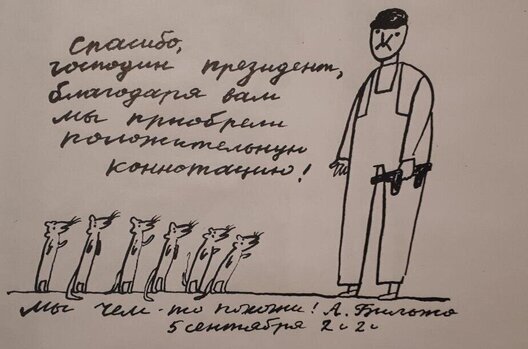 Спасибо,
господин президент,
благодаря вам
мы приобрели
положительную
коннотацию!
Мы чем-то похожи! А. Бильжо
5 сентября 2020